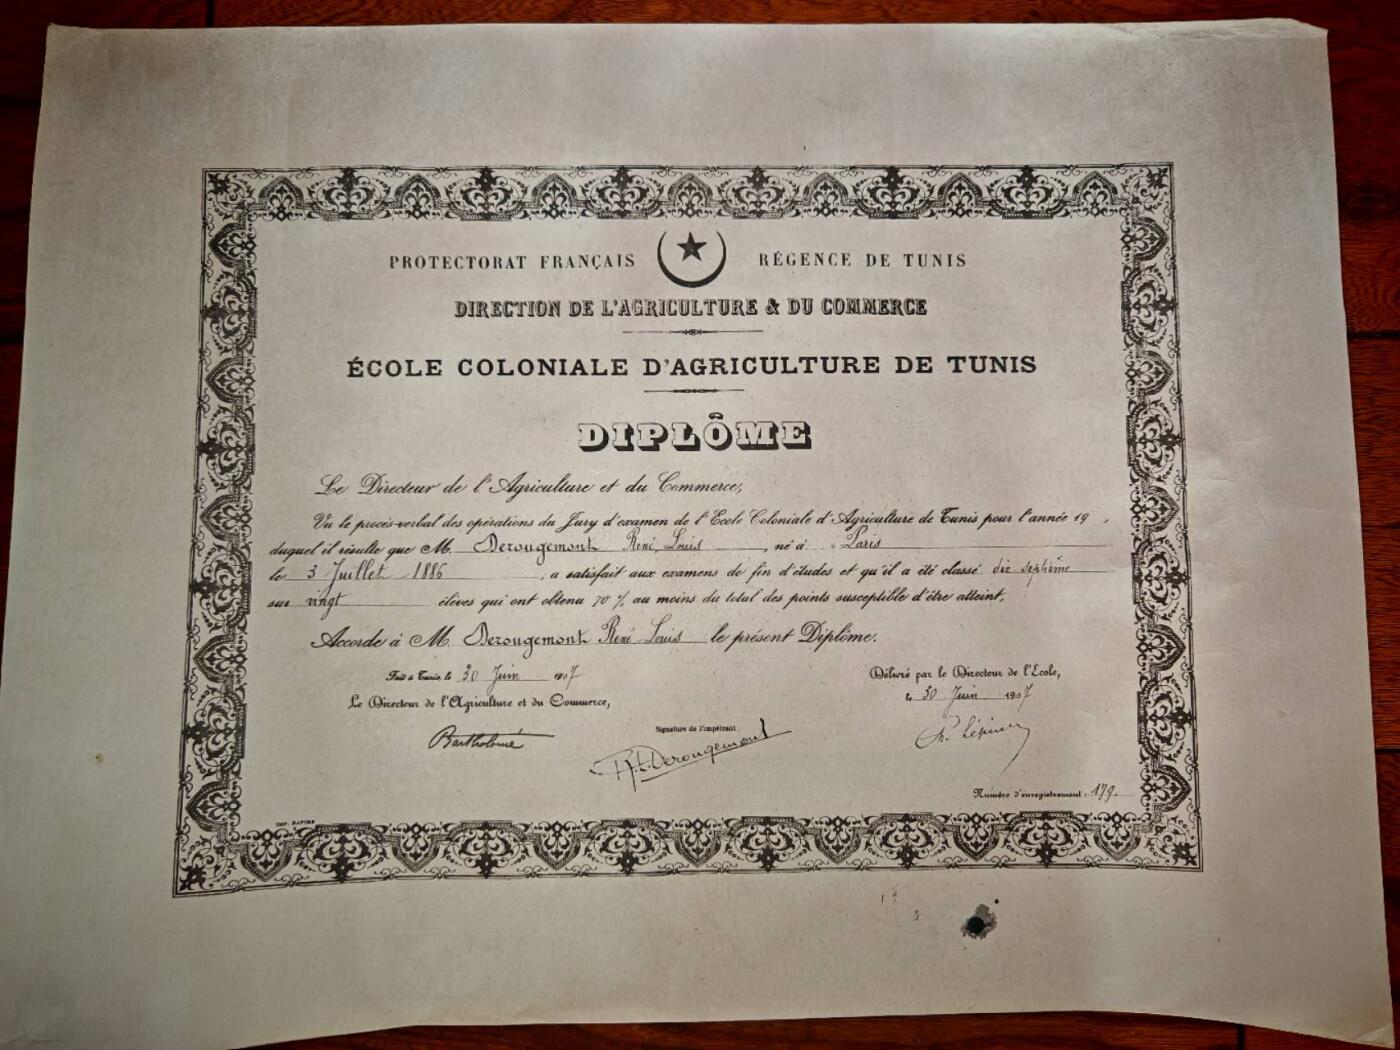 PROTECTORAT FRANÇAIS RÉGENCE DE TUNIS
DIRECTION DE L'AGRICULTURE & DU COMMERCE
ÉCOLE COLONIALE D'AGRICULTURE DE TUNIS
DIPLÔME
Le Directeur de l'Agriculture et du Commerce,
Vu le procès-verbal des opérations du Jury d'examen de l'Ecole Coloniale d'Agriculture de Tunis pour l'année 19 ,
duquel il résulte que M. Derougemont René, Louis , né à Paris
le 3 Juillet 1886 , a satisfait aux examens de fin d'études et qu'il a été classé dix septième
sur vingt élèves qui ont obtenu 70 % au moins du total des points susceptible d'être atteint,
Accorde à M. Derougemont René Louis le présent Diplôme.
Fait à Tunis, le 30 Juin 1907
Délivré par le Directeur de l'École,
le 30 Juin 1907
Le Directeur de l'Agriculture et du Commerce,
Signature de l'impétrant :
Bartholomé
R. L. Derougemont
Numéro d'enregistrement : 179.
IMP. RAPIDE